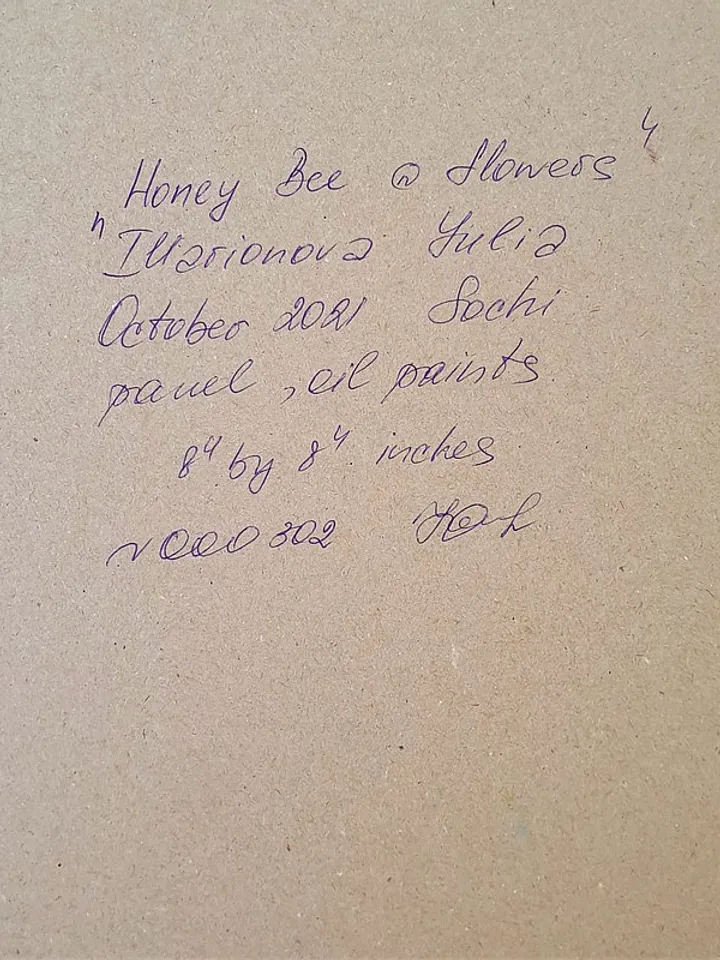 "Honey Bee @ flowers"
Illarionova Yulia
October 2021 Sochi
panel, oil paints
8" by 8" inches
N000302